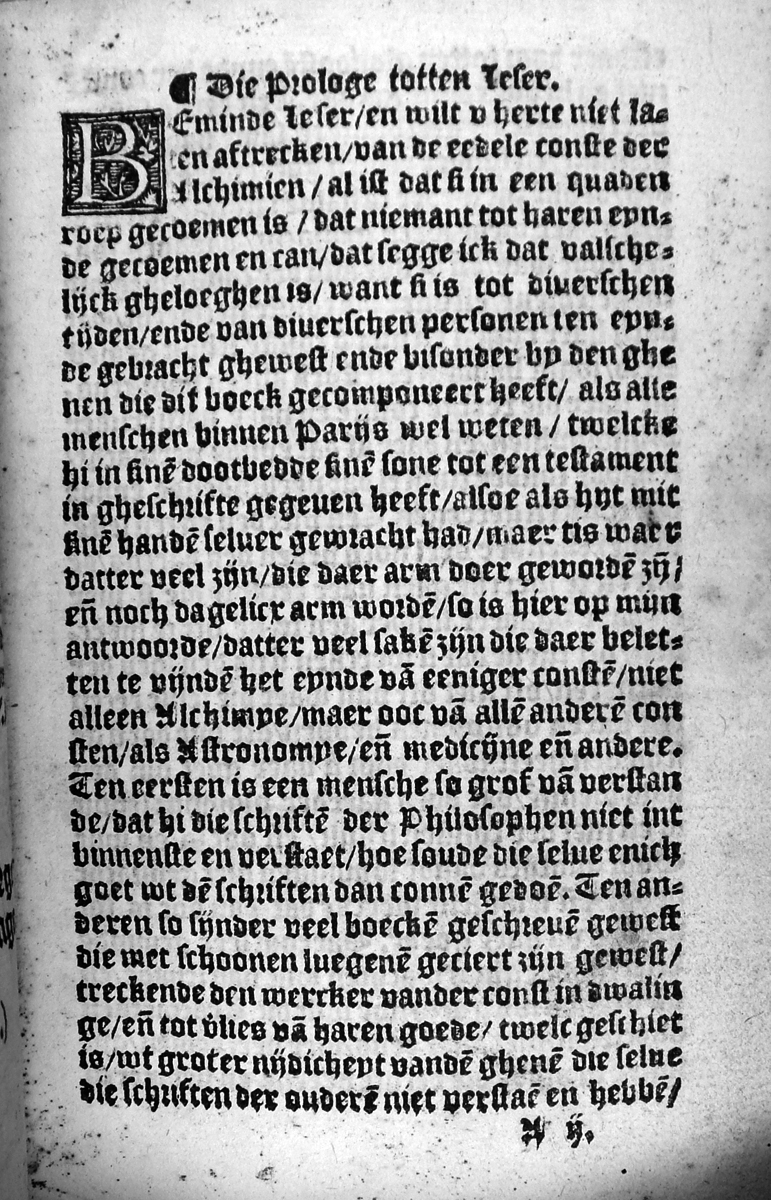 ¶ Die Prologe totten leser.
BEminde leser/en wilt v herte niet la-
ten aftrecken/van de eedele conste der
Alchimien/al ist dat si in een quaden
roep gecoemen is/dat niemant tot haren eyn-
de gecoemen en can/dat segge ick dat valsche-
lijck gheloeghen is/want si is tot diuerschen
tijden/ende van diuerschen personen ten eyn-
de gebracht ghewest ende bisonder by den ghe
nen die dit boeck gecomponeert heeft/als alle
menschen binnen Parijs wel weten/twelcke
hi in sinē dootbedde sinē sone tot een testament
in gheschrifte gegeuen heeft/alsoe als hijt mit
sinē handē seluer gewracht had/maer tis waer
datter veel zijn/die daer arm doer gewordē zȳ/
eñ noch dagelicx arm wordē/so is hier op mijn
antwoorde/datter veel sakē zijn die daer belet-
ten te vijndē het eynde vā eeniger constē/niet
alleen Alchimye/maer ooc vā allē anderē con
sten/als Astronomye/eñ medicijne eñ andere.
Ten eersten is een mensche so grof vā verstan
de/dat hi die schriftē der Philosophen niet int
binnenste en verstaet/hoe soude die selue enich
goet wt dē schriften dan connē gedoē. Ten an-
deren so sijnder veel boeckē geschreuē gewest
die met schoonen luegenē geciert zijn gewest/
treckende den wercker vander const in dwalin
ge/eñ tot v̄lies vā haren goede/twelc geschiet
is/wt groter nijdicheyt vandē ghenē die selue
die schriften der ouderē niet verstaē en hebbē/
A ij.